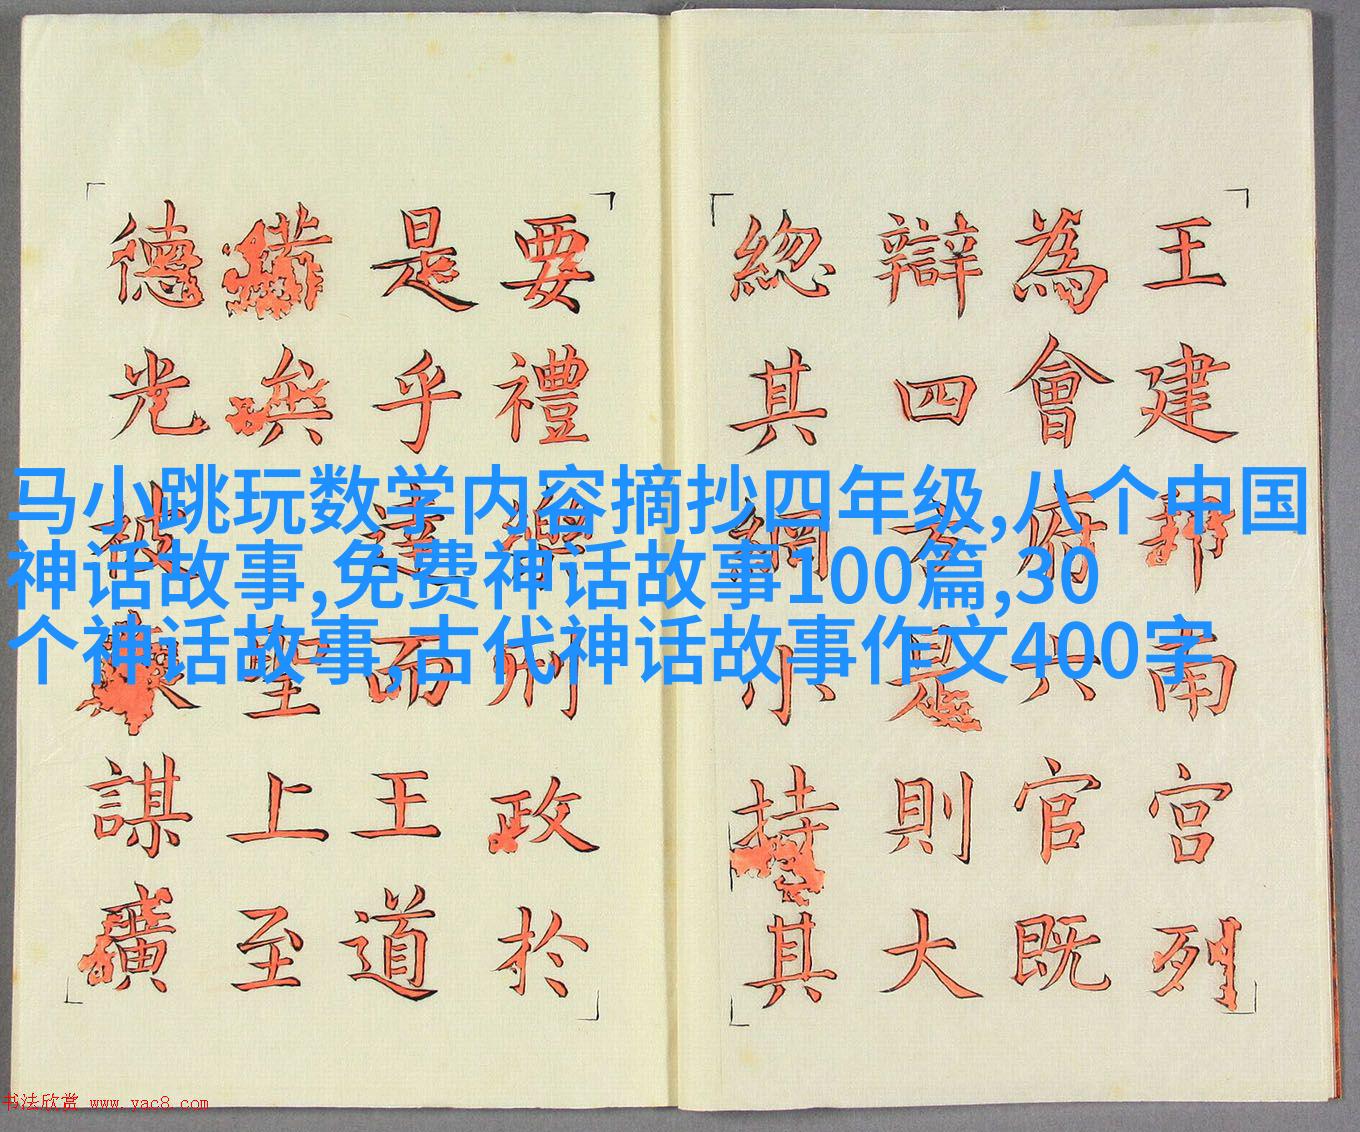 王建邦南宮列
為會府六官既
辯四方是則大
緫其綱小持其
要禮樂刑政於
是乎達而王道
備矣聖上至
德光被謀廣
马小跳玩数学内容摘抄四年级,八个中国
神话故事,免费神话故事100篇,30
个神话故事,古代神话故事作文400字
书法欣赏 www.yac8.com